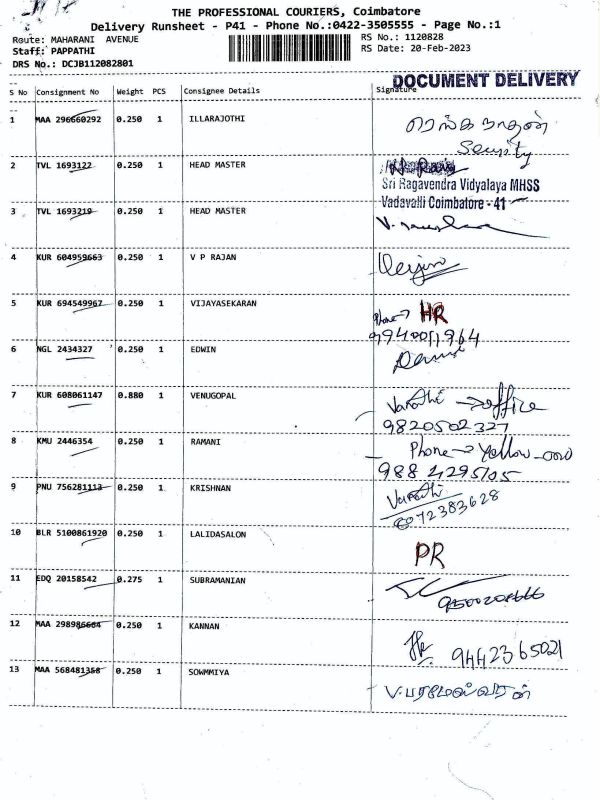 THE PROFESSIONAL COURIERS, Coimbatore
Delivery Runsheet - P41 - Phone No.:0422-3505555 - Page No.:1
Route: MAHARANI AVENUE
RS No.: 1120828
Staff: PAPPATHI
RS Date: 20-Feb-2023
DRS No.: DCJB112082801
DOCUMENT DELIVERY
S No Consignment No Weight PCS Consignee Details Signature
1 MAA 296660292 0.250 1 ILLARAJOTHI
ரெங்கநாதன்
Security
2 TVL 1693122 0.250 1 HEAD MASTER
Sri Ragavendra Vidyalaya MHSS
Vadavalli Coimbatore - 41
3 TVL 1693219 0.250 1 HEAD MASTER
4 KUR 604959663 0.250 1 V P RAJAN
5 KUR 694549967 0.250 1 VIJAYASEKARAN
Phone→ HR
9940011964
6 NGL 2434327 0.250 1 EDWIN
7 KUR 608061147 0.880 1 VENUGOPAL
→office
9820502327
8 KMU 2446354 0.250 1 RAMANI
Phone→ Yellow
9884295105
9 PNU 756281113 0.250 1 KRISHNAN
8072383628
10 BLR 5100861920 0.250 1 LALIDASALON
PR
11 EDQ 20158542 0.275 1 SUBRAMANIAN
12 MAA 298986664 0.250 1 KANNAN
9442365021
13 MAA 568481358 0.250 1 SOWMMIYA
V.பரமேஸ்வரன்